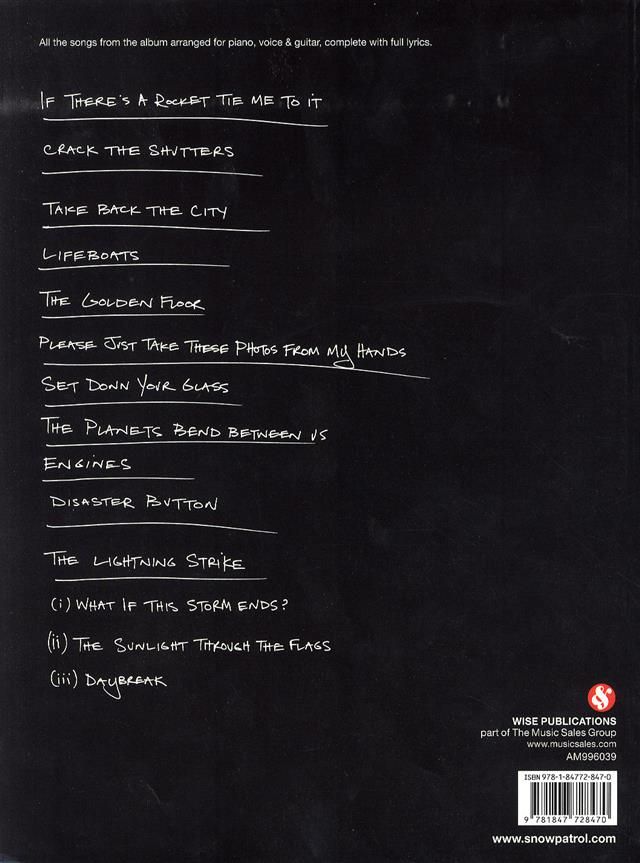 All the songs from the album arranged for piano, voice & guitar, complete with full lyrics.
IF THERE'S A ROCKET TIE ME TO IT
CRACK THE SHUTTERS
TAKE BACK THE CITY
LIFEBOATS
THE GOLDEN FLOOR
PLEASE JUST TAKE THESE PHOTOS FROM MY HANDS
SET DOWN YOUR GLASS
THE PLANETS BEND BETWEEN US
ENGINES
DISASTER BUTTON
THE LIGHTNING STRIKE
(i) WHAT IF THIS STORM ENDS?
(ii) THE SUNLIGHT THROUGH THE FLAGS
(iii) DAYBREAK
WISE PUBLICATIONS
part of The Music Sales Group
www.musicsales.com
AM996039
ISBN 978-1-84772-847-0
9 781847 728470
www.snowpatrol.com